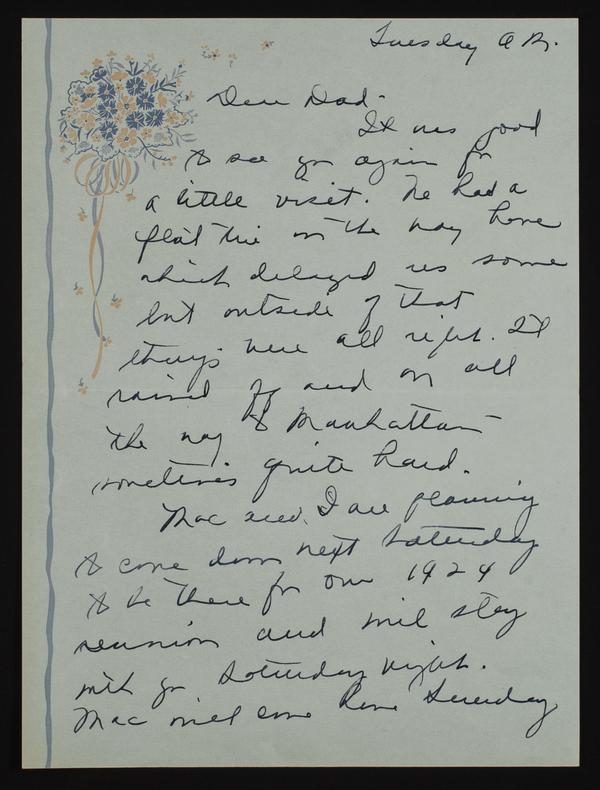 Tuesday A.M.
Dear Dad-
It was good
to see you again for
a little visit. We had a
flat tire on the way home
which delayed us some
but outside of that
things were all right. It
rained off and on all
the way to Manhattan
sometimes quite hard.
Mac and I are planning
to come down next Saturday
to be there for our 1924
reunion and will stay
with you Saturday night.
Mac will come home Sunday